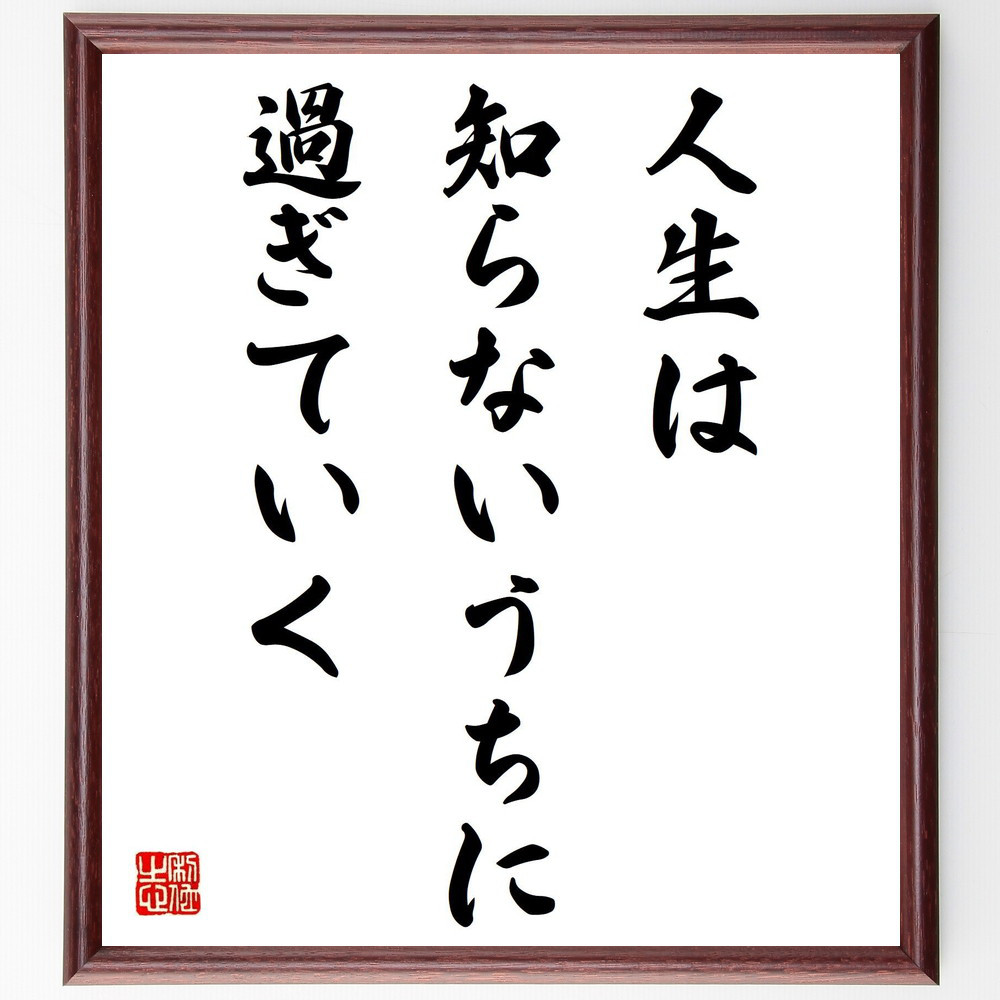 人生は
知らないうちに
過ぎていく